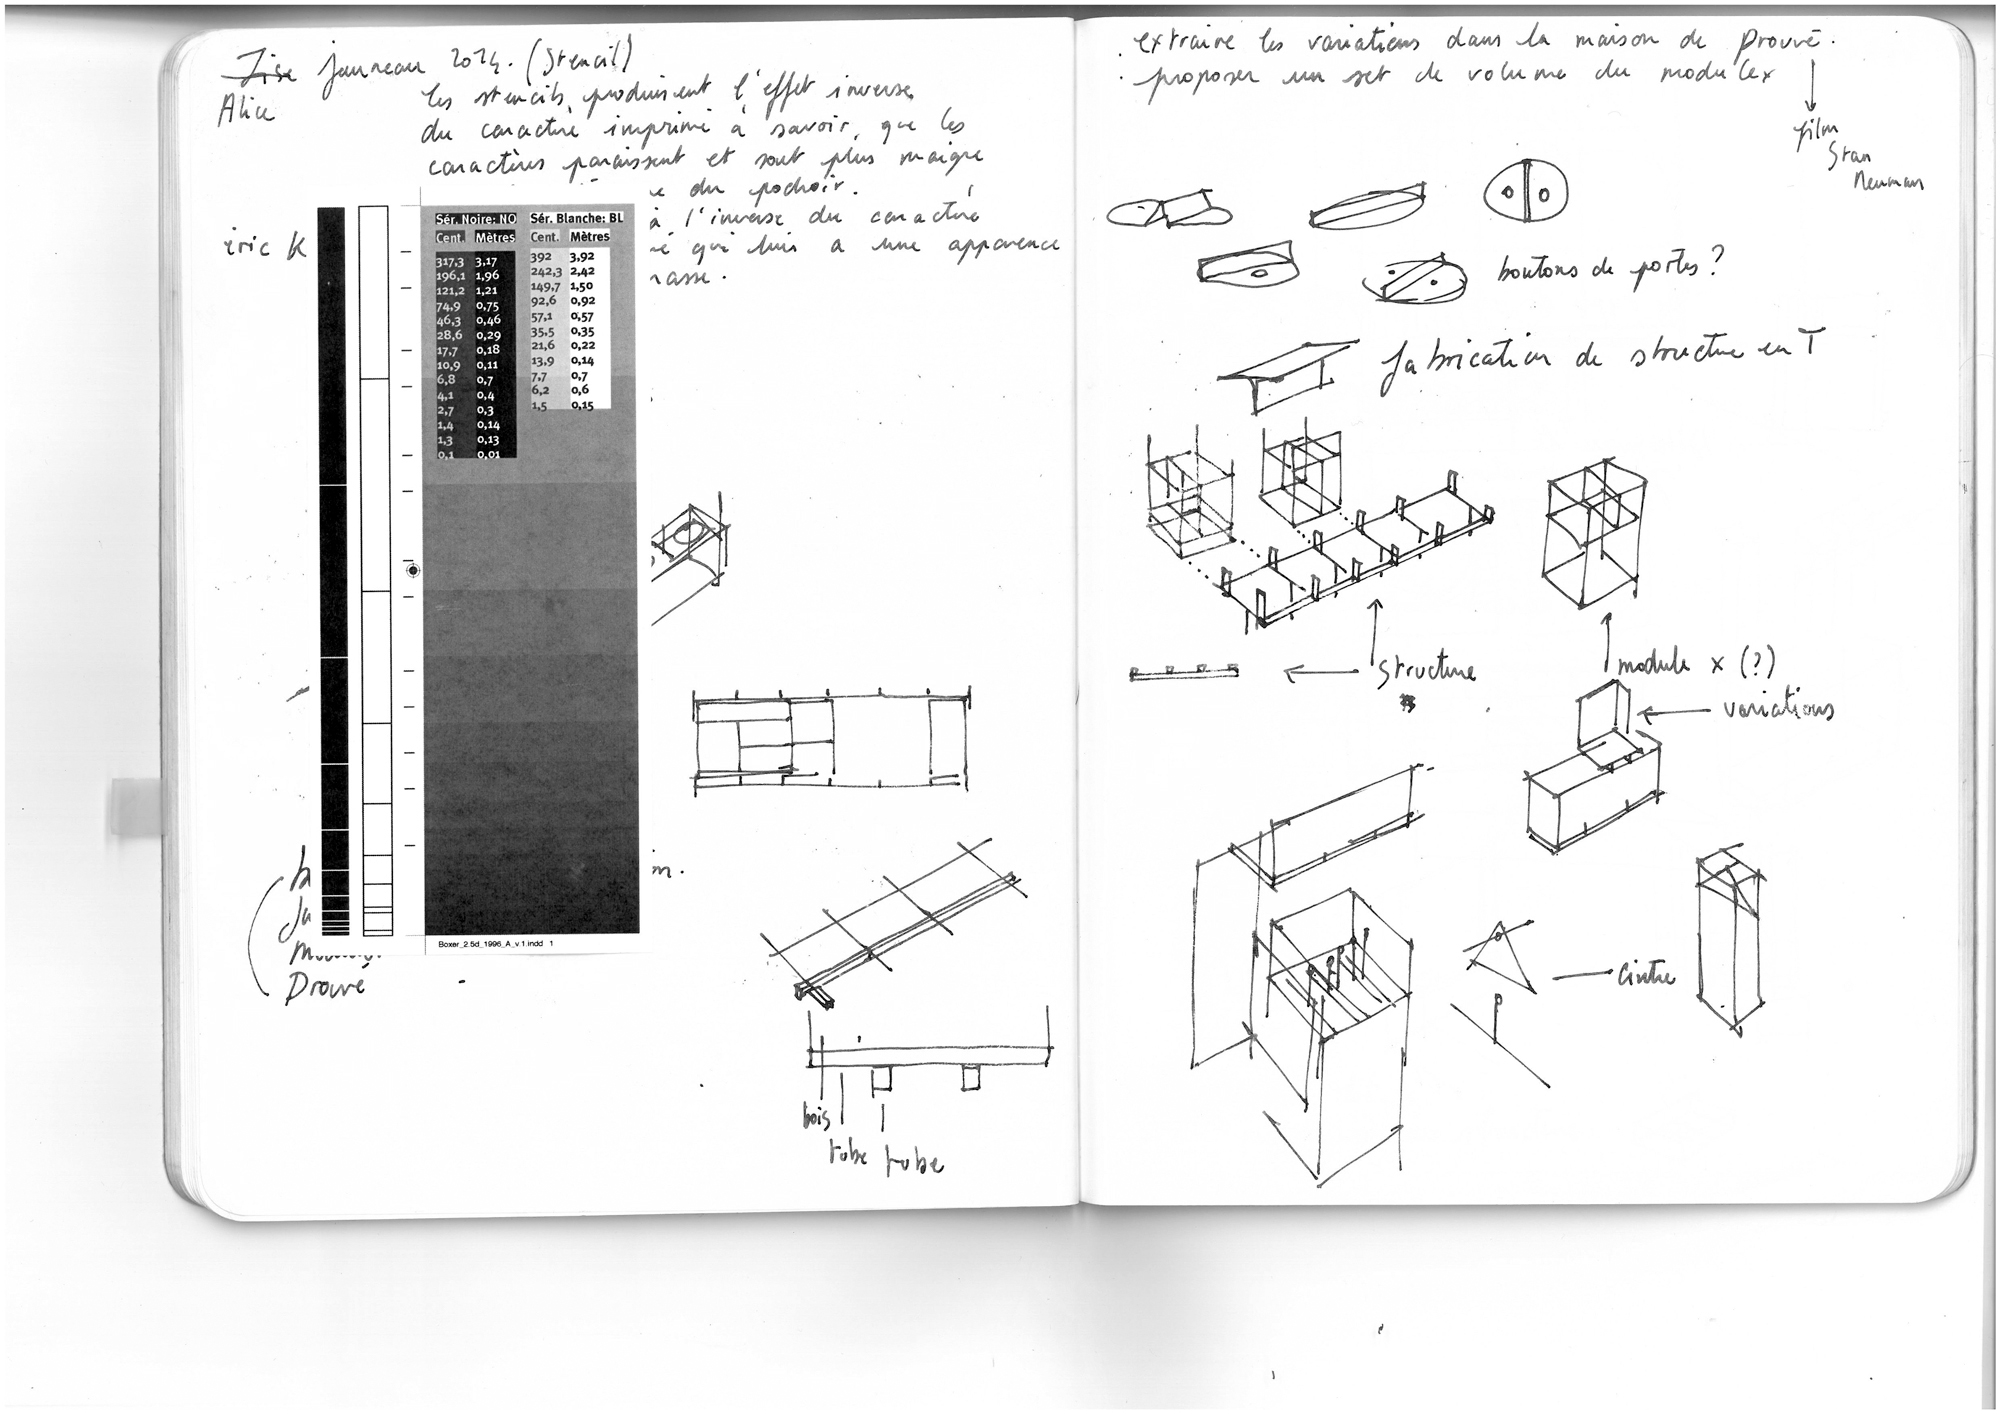 Jise jauneau 2024. (Stencil)
Alice
les stencils, produisent l'effet inverse
du caractère imprimé à savoir, que les
caractères paraissent et sont plus maigre
du pochoir.
à l'inverse du caractère
qui lui a une apparence
éric K
Sér. Noire: NO Sér. Blanche: BL
Cent. Mètres Cent. Mètres
317,3 3,17 392 3,92
196,1 1,96 242,3 2,42
121,2 1,21 149,7 1,50
74,9 0,75 92,6 0,92
46,3 0,46 57,1 0,57
28,6 0,29 35,5 0,35
17,7 0,18 21,6 0,22
10,9 0,11 13,9 0,14
6,8 0,7 7,7 0,7
4,1 0,4 6,2 0,6
2,7 0,3 1,5 0,15
1,4 0,14
1,3 0,13
0,1 0,01
Boxer_2.5d_1996_A_v.1.indd 1
Prouvé
bois
tube tube
. extraire les variations dans la maison de prouvé.
. proposer un set de volume du modulex
film
Stan
Neuman
boutons de portes?
fabrication de structure en T
structure
module x (?)
variations
Cintre